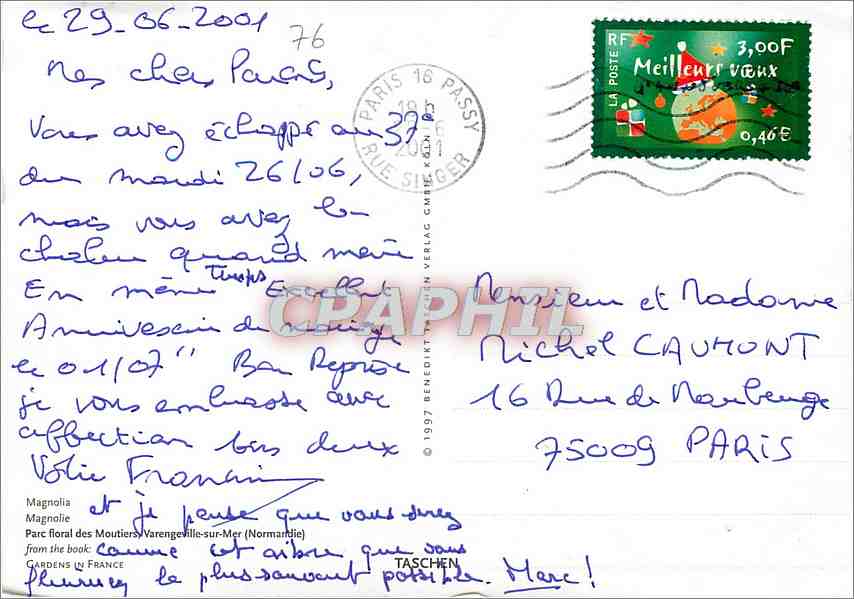 le 29-06-2001
76
Mes chers Parents,
Vous avez échappé au 37°
du mardi 26/06,
mais vous avez la
chaleur quand même
En même Temps Excellent
Anniversaire de mariage
le 01/07" Bon Reprise
je vous embrasse avec
affection tous deux
Votre
et je pense que vous serez
comme cet arbre que vous
fleurirez le plus souvent possible. Merci!
Magnolia
Magnolie
Parc floral des Moutiers, Varengeville-sur-Mer (Normandie)
from the book:
GARDENS IN FRANCE
TASCHEN
© 1997 BENEDIKT TASCHEN VERLAG GMBH, KÖLN
PARIS 16 PASSY
RUE SINGER
RF
LA POSTE
3,00F
Meilleurs vœux
0,46€
Monsieur et Madame
Michel CAUMONT
16 Rue de Maubeuge
75009 PARIS
CPAPHIL